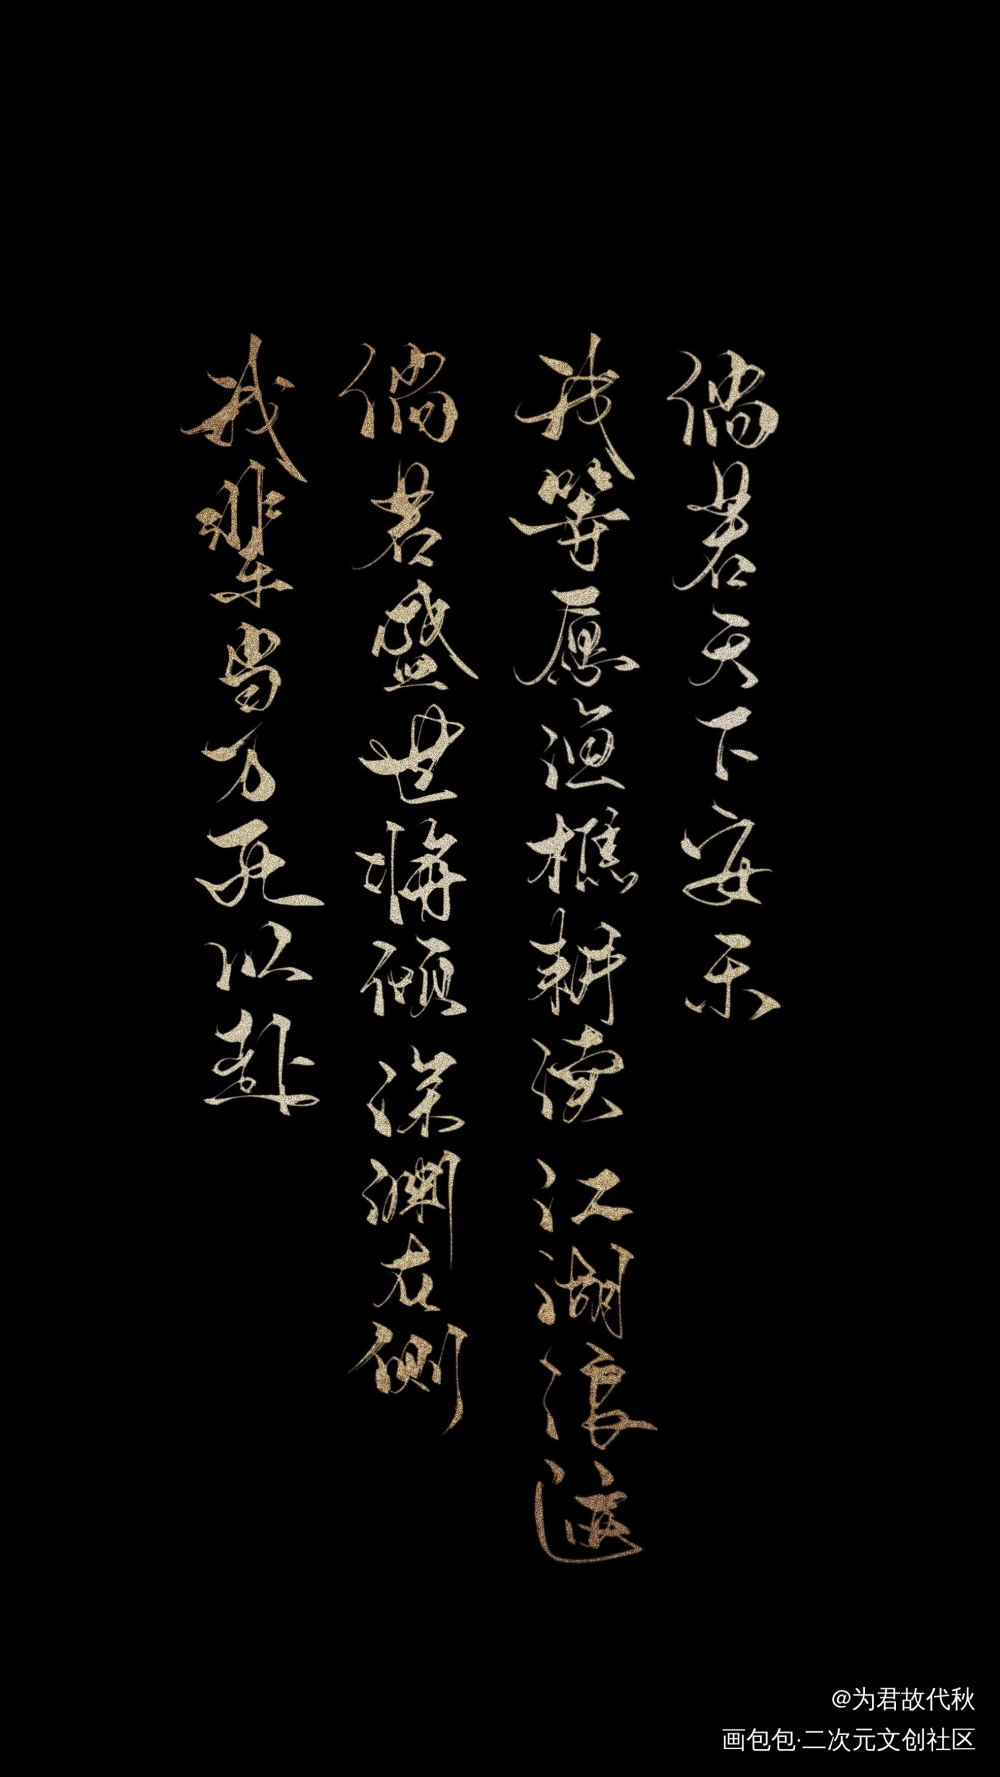 倘若天下安乐
我等愿渔樵耕读 江湖浪迹
倘若盛世将倾 深渊在侧
我辈当万死以赴
@为君故代秋
画包包·二次元文创社区